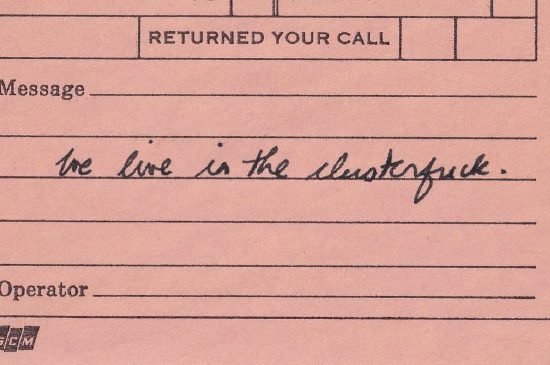 RETURNED YOUR CALL
Message
We live in the clusterfuck.
Operator
SCM